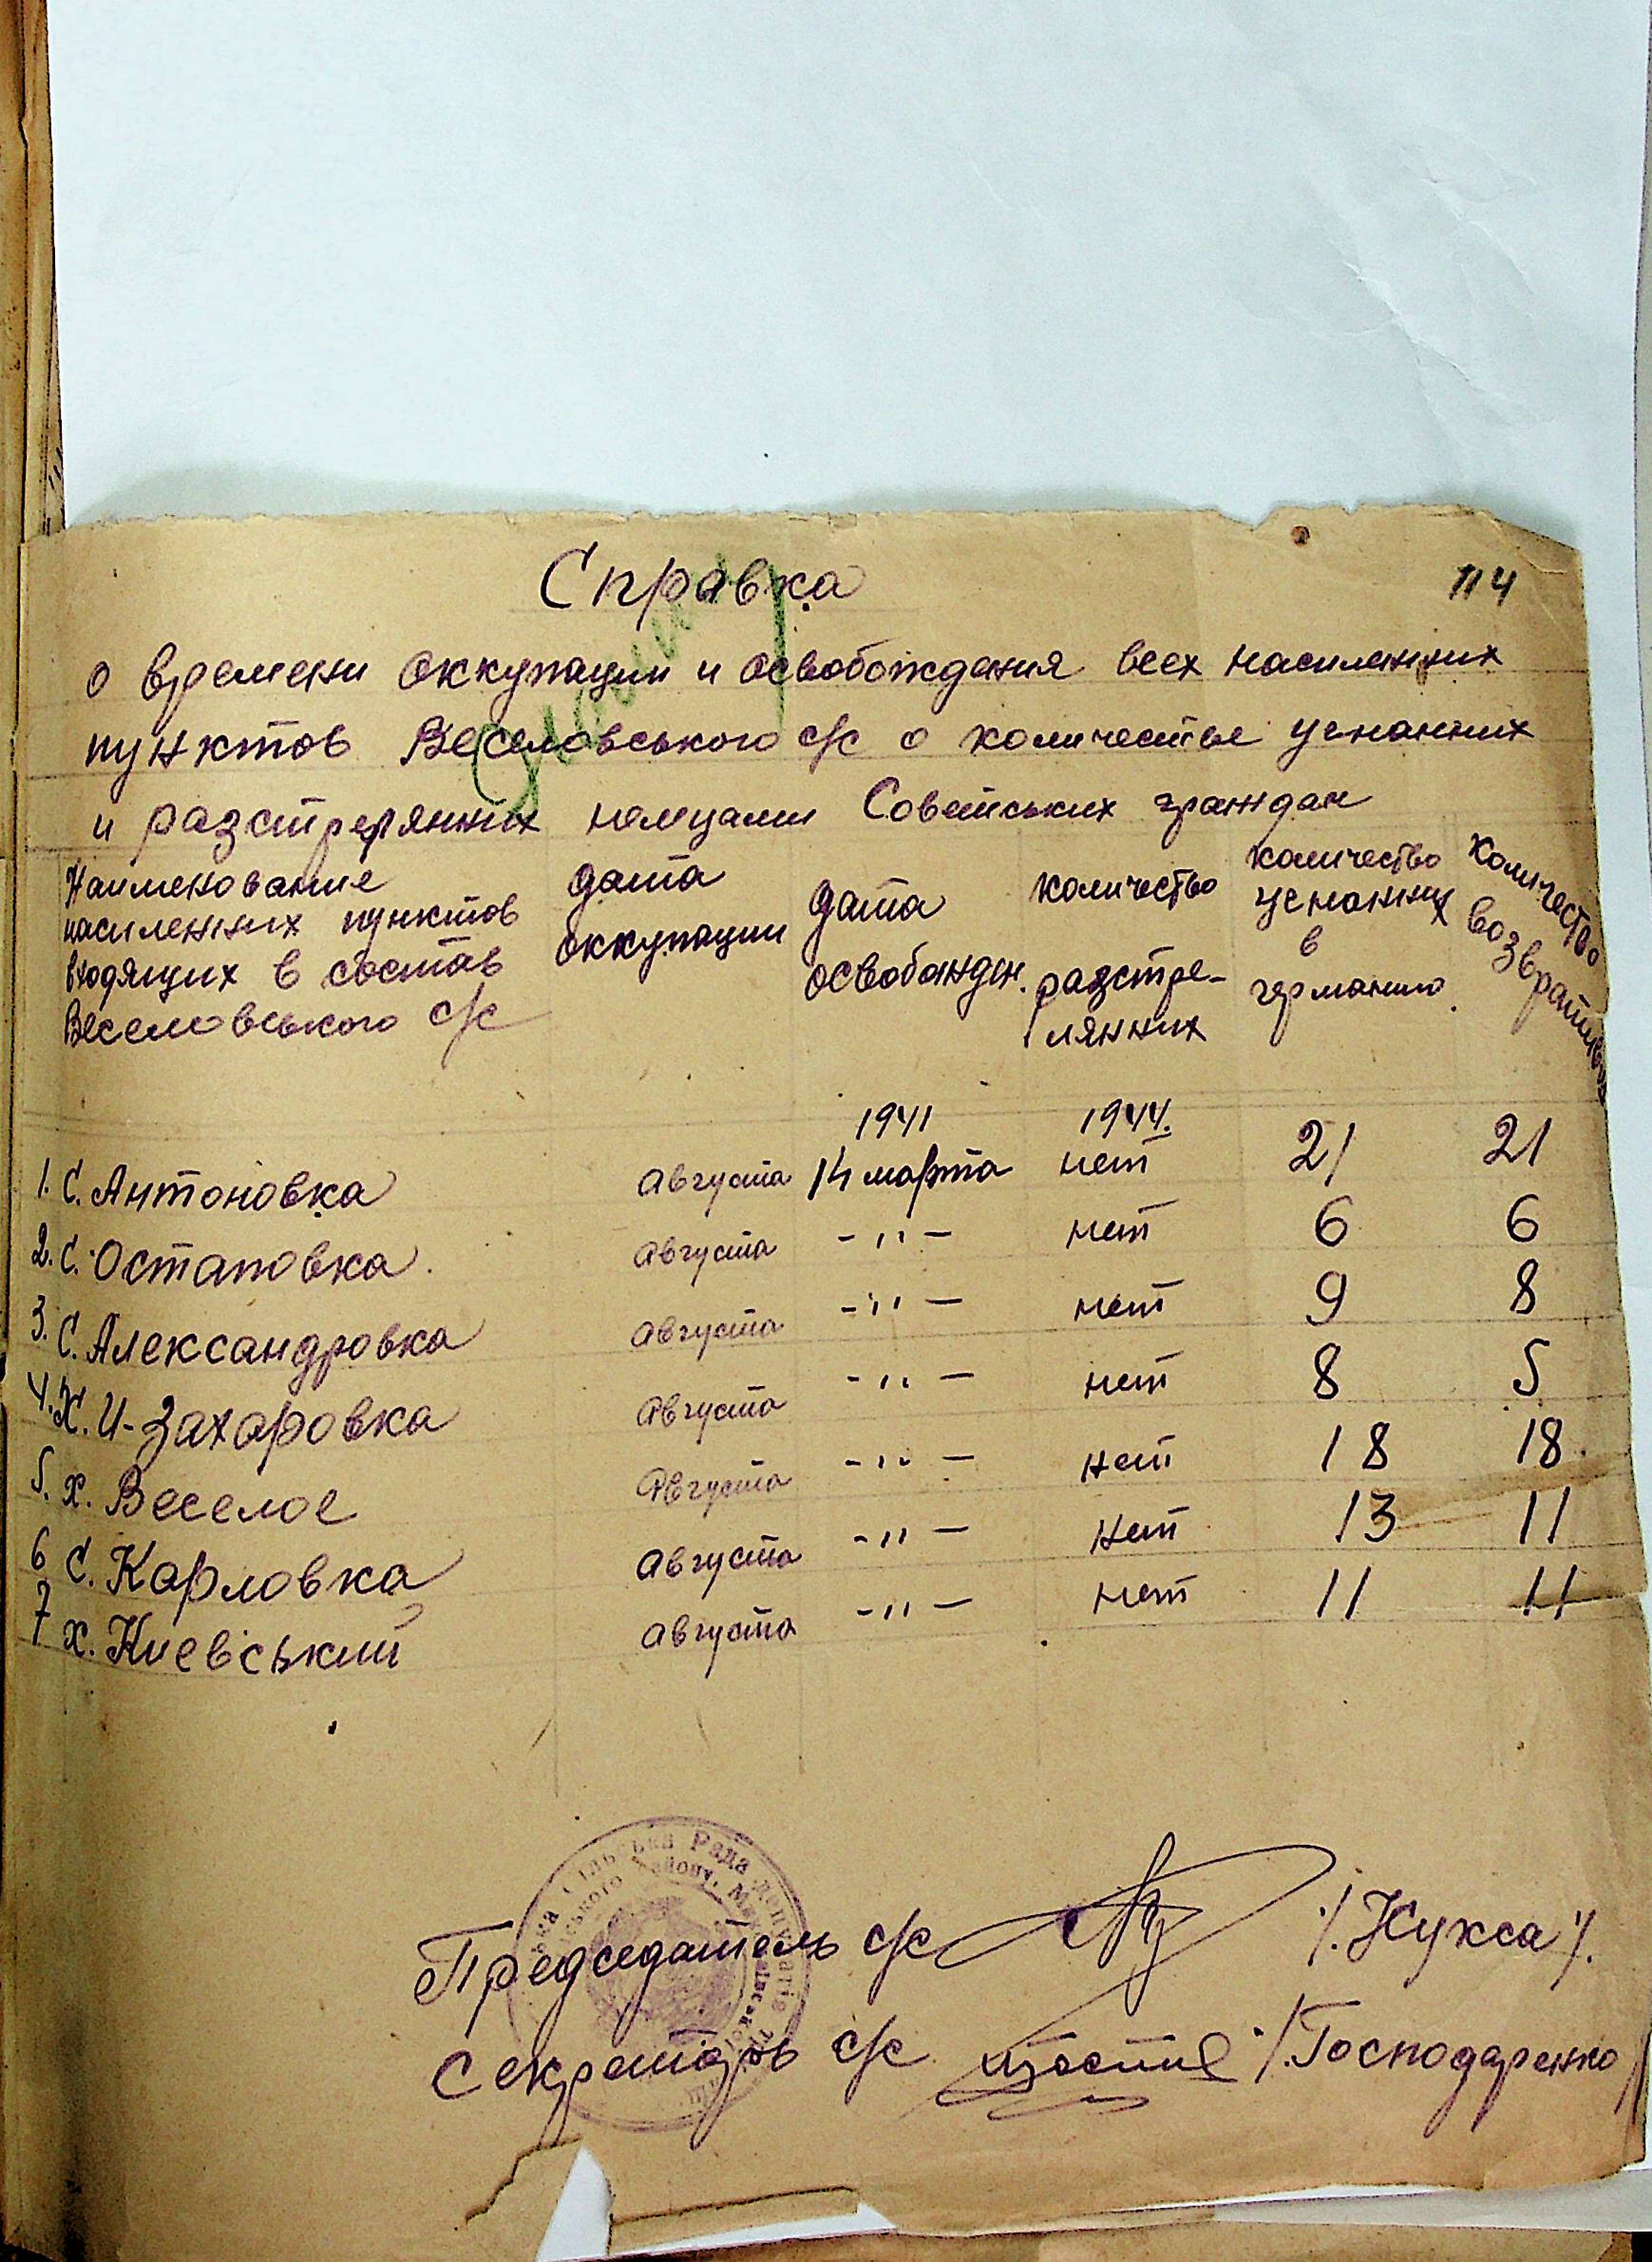 Справка
114
о времени оккупации и освобождения всех насиленних
пунктов Веселовського с/с о количестве угнанних
и разстрелянних немцами Советських граждан
Наименование
насиленних пунктов
входящих в состав
Веселовського с/с
дата
оккупации
дата
освобожден.
количество
разстре-
лянних
количество
угнанних
в
германию.
количество
возврати
1941 1944.
1. С. Антоновка Августа 14 марта нет 21 21
2. С. Остаповка. Августа -"- нет 6 6
3. С. Александровка Августа -"- нет 9 8
4. Х. И-Захаровка Августа -"- нет 8 5
5. х. Веселое Августа -"- нет 18 18.
6 С. Карловка Августа -"- нет 13 11
7 х. Киевіський Августа -"- нет 11 11
Рада депутатів
району,
Председатель с/с /.Кукса/.
Секретарь с/с /.Господаренко/